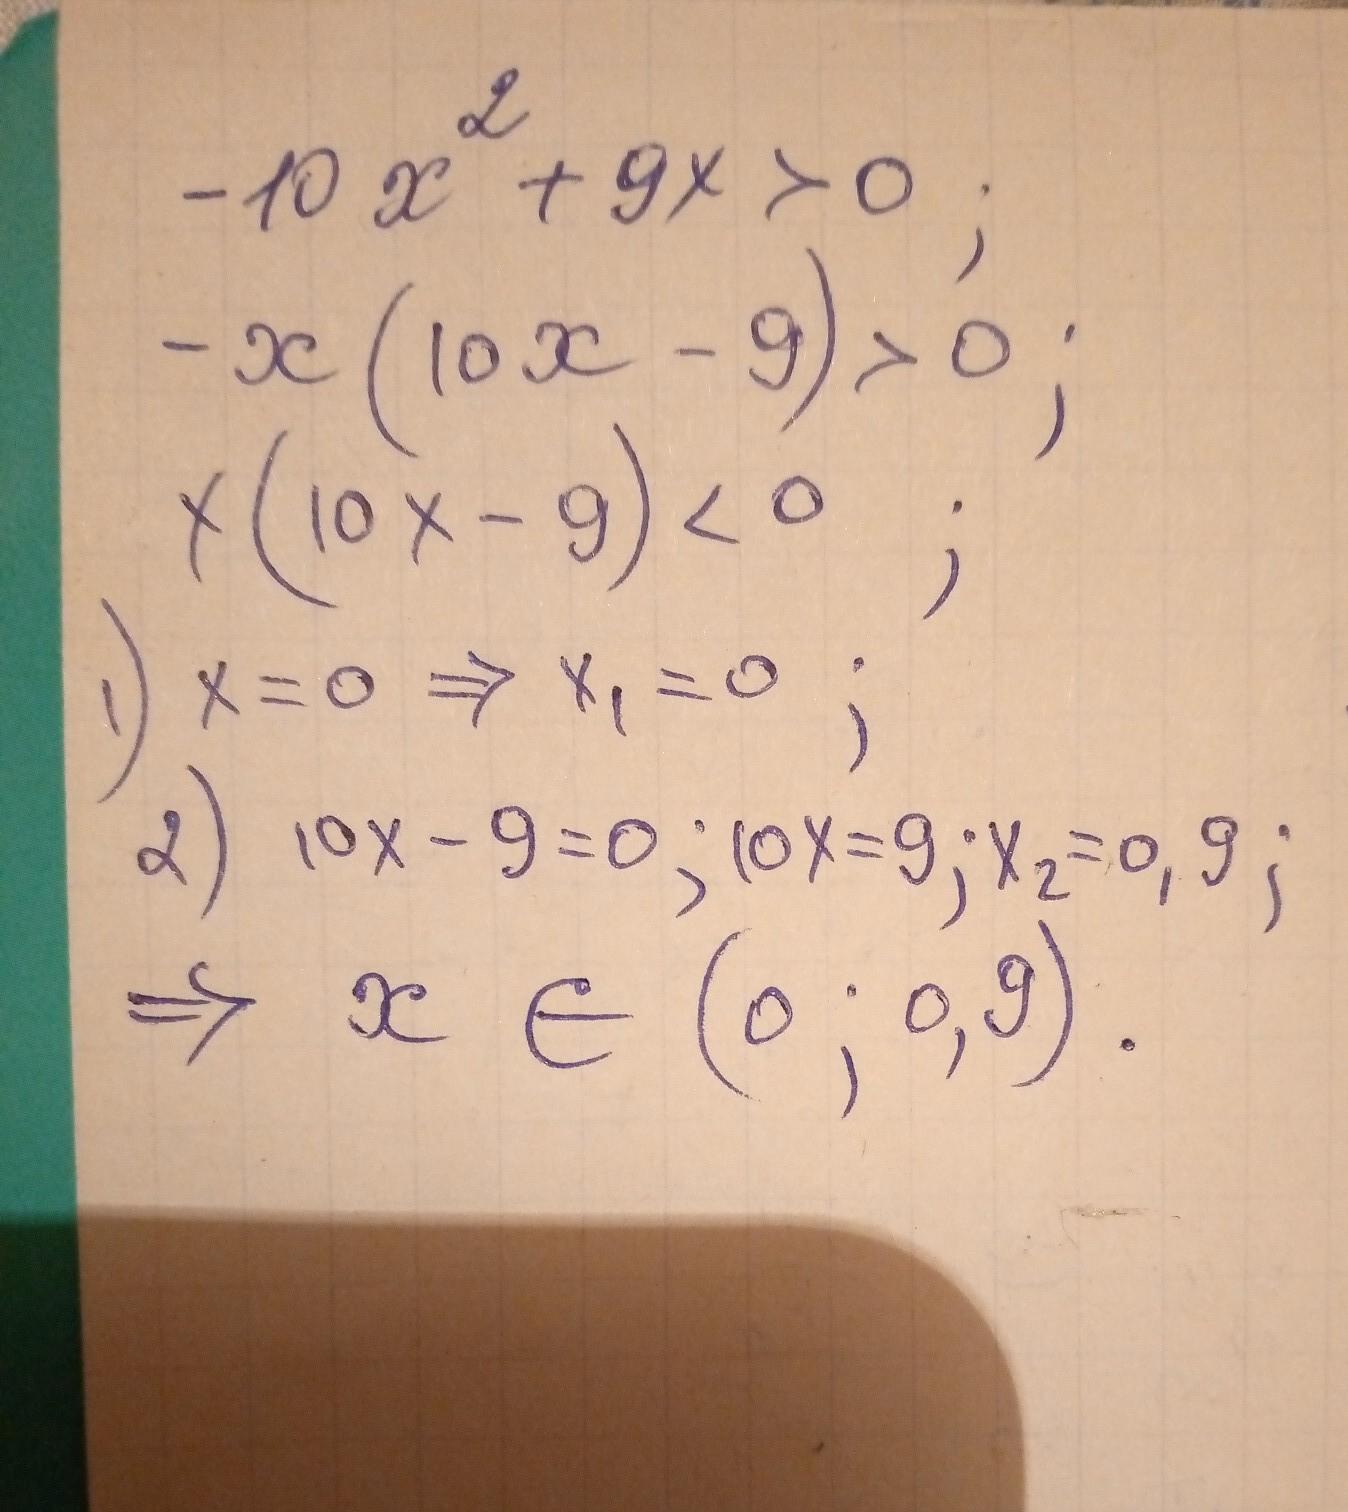 -10x² + 9x > 0 ;
-x(10x - 9) > 0 ;
x(10x - 9) < 0 ;
1) x = 0 ⇒ x₁ = 0 ;
2) 10x - 9 = 0 ; 10x = 9 ; x₂ = 0,9 ;
⇒ x ∈ (0 ; 0,9).